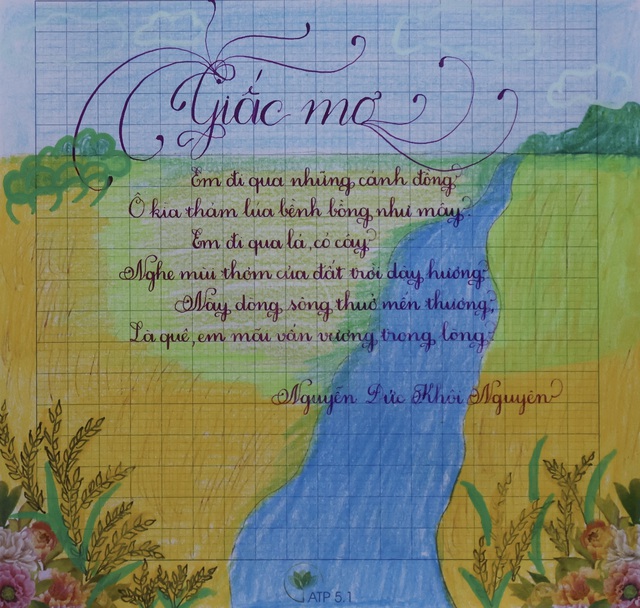 Giấc mơ
Em đi qua những cánh đồng
Ồ kìa thảm lúa bềnh bồng như mây.
Em đi qua lá, cỏ cây
Nghe mùi thơm của đất trời dậy hương
Này dòng sông thuở mến thương,
Là quê, em mãi vấn vương trong lòng.
Nguyễn Đức Khôi Nguyên
ATP 5.1